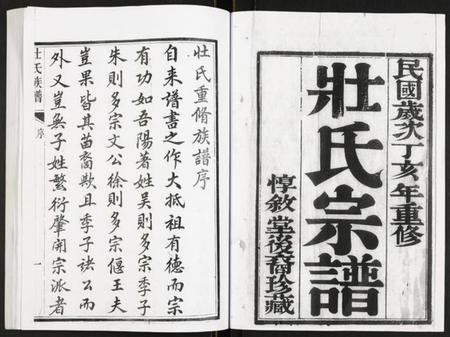 民國歲次丁亥年重修
壯氏宗譜
惇敘堂後裔珍藏
壯氏重脩族譜序
自来譜書之作大抵祖有德而宗
有功如吾陽著姓吴則多宗季子
朱則多宗文公徐則多宗偃王夫
豈果皆其苗裔歟且季子諸公而
外又豈無子姓繁衍肇開宗派者
壯氏族譜
序
一